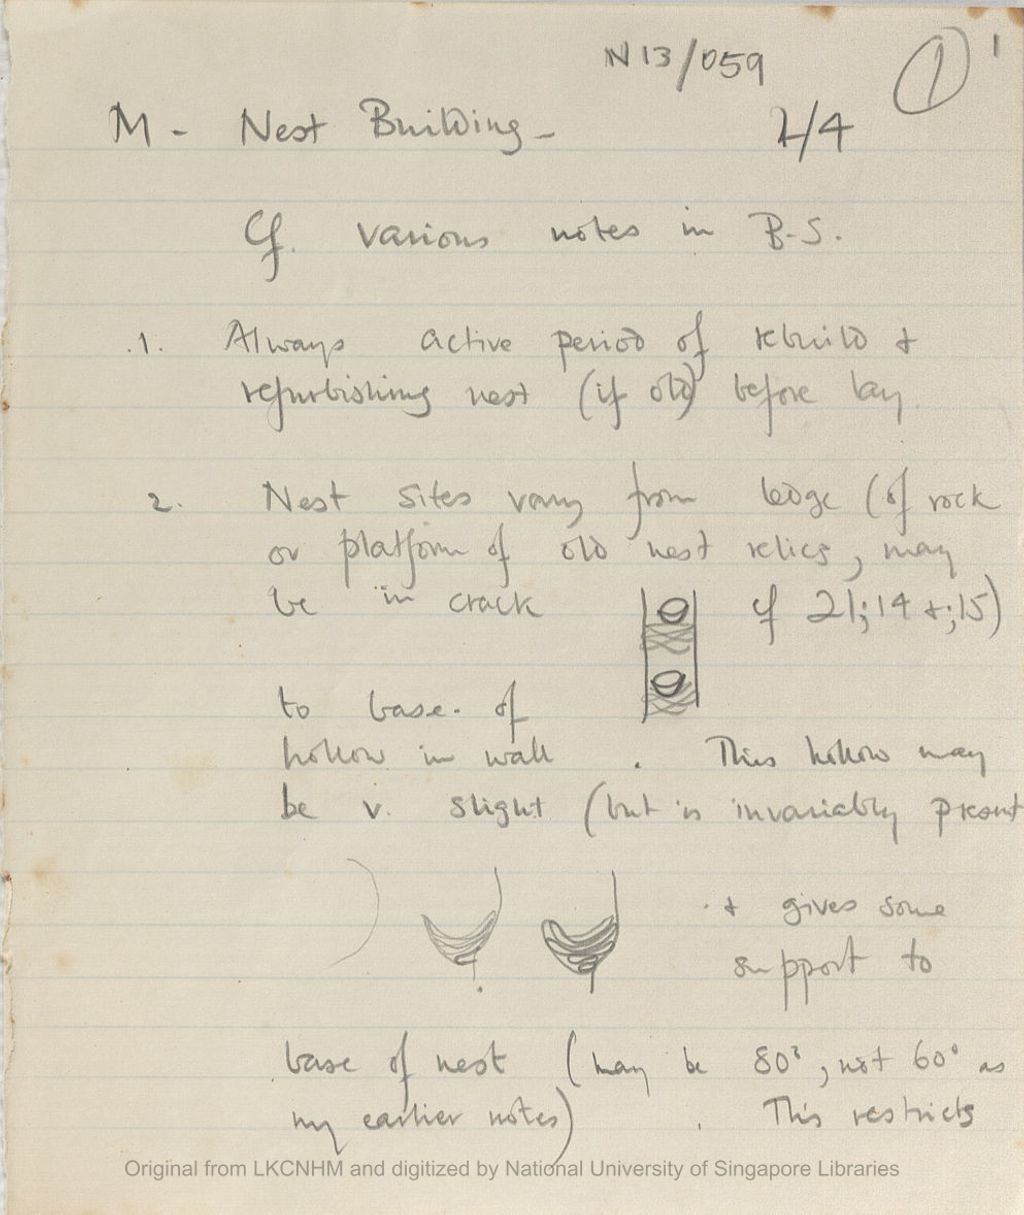 N13/059
① 1
M - Nest Building - 2/4
Cf. various notes in B.S.
1. Always active period of rebuild &
refurbishing nest (if old) before lay.
2. Nest sites vary from ledge (of rock
or platform of old nest relics, may
be in crack cf 21;14 &;15)
to base of
hollow in wall . This hollow may
be v. slight (but is invariably present
& gives some
support to
base of nest (may be 80°, not 60° as
my earlier notes) . This restricts
Original from LKCNHM and digitized by National University of Singapore Libraries